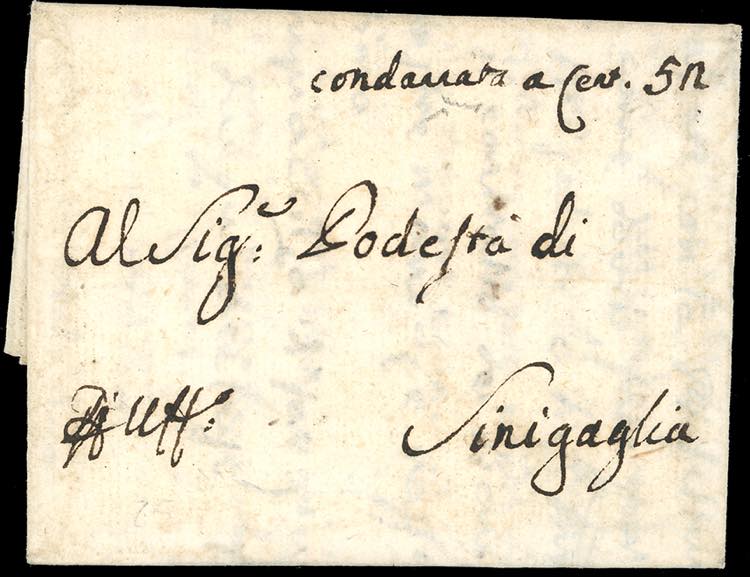 condannata a Cent. 52
Al Sig.r Podestà di
Di Uff.o
Sinigaglia
25